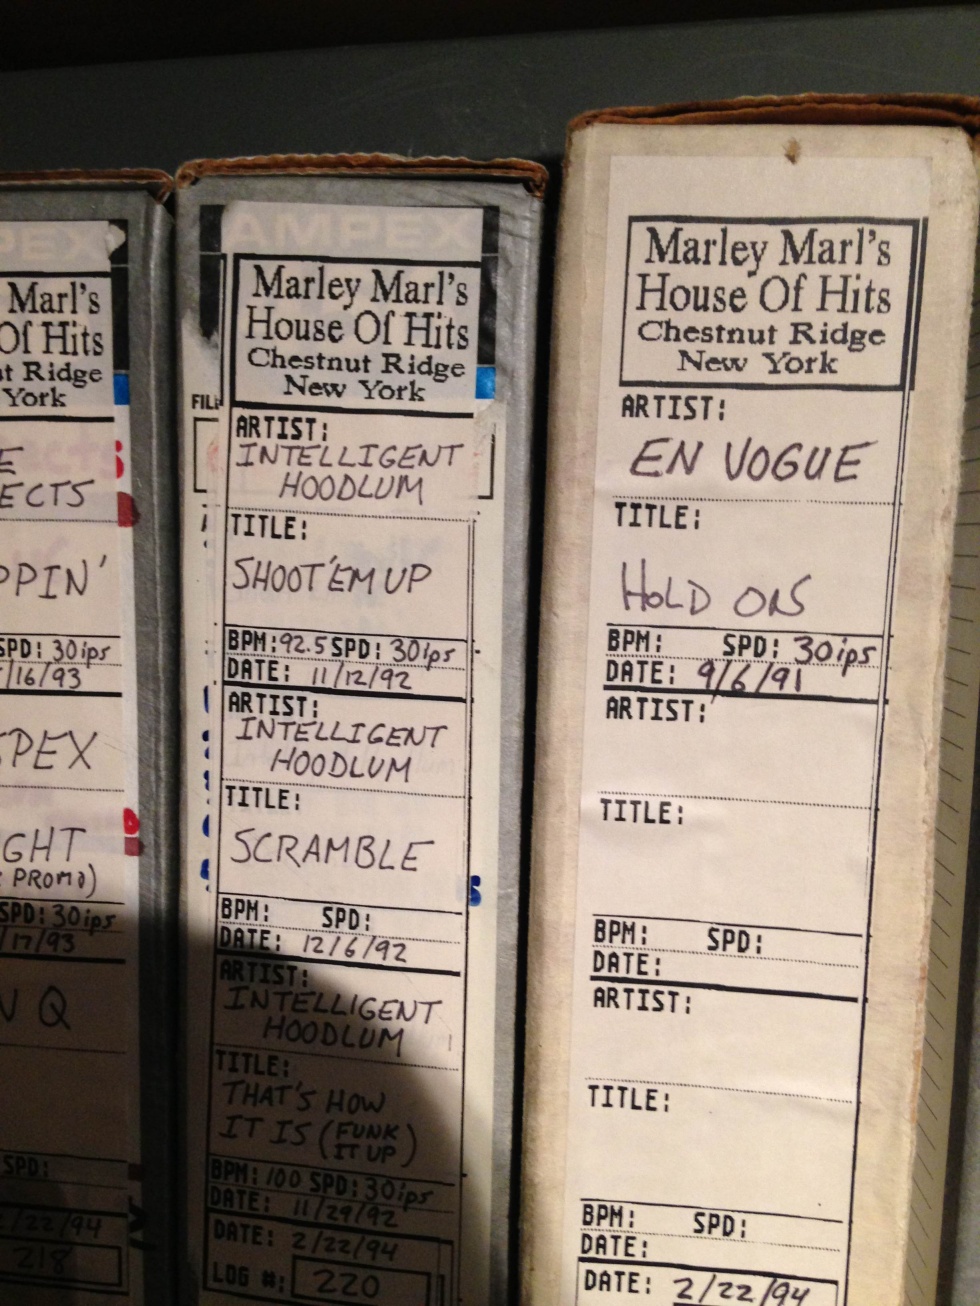 PEX
Marl's
Of Hits
t Ridge
York
E
ECTS
PPIN'
SPD: 30ips
/16/93
PEX
GHT
PROMO)
SPD: 30ips
/17/93
N Q
SPD:
/22/94
218
AMPEX
Marley Marl's
House Of Hits
Chestnut Ridge
New York
FIL
ARTIST:
INTELLIGENT
HOODLUM
TITLE:
SHOOT'EM UP
BPM: 92.5 SPD: 30ips
DATE: 11/12/92
ARTIST:
INTELLIGENT
HOODLUM
TITLE:
SCRAMBLE
BPM: SPD:
DATE: 12/6/92
ARTIST:
INTELLIGENT
HOODLUM
TITLE:
THAT'S HOW
IT IS (FUNK
IT UP)
BPM: 100 SPD: 30ips
DATE: 11/29/92
DATE: 2/22/94
LOG #: 220
Marley Marl's
House Of Hits
Chestnut Ridge
New York
ARTIST:
EN VOGUE
TITLE:
HOLD ON
BPM: SPD: 30ips
DATE: 9/6/91
ARTIST:
TITLE:
BPM: SPD:
DATE:
ARTIST:
TITLE:
BPM: SPD:
DATE:
DATE: 2/22/94